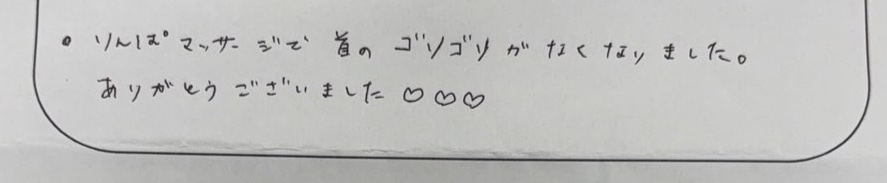 ・りんぱマッサージで首のゴリゴリがなくなりました。
ありがとうございました♡♡♡